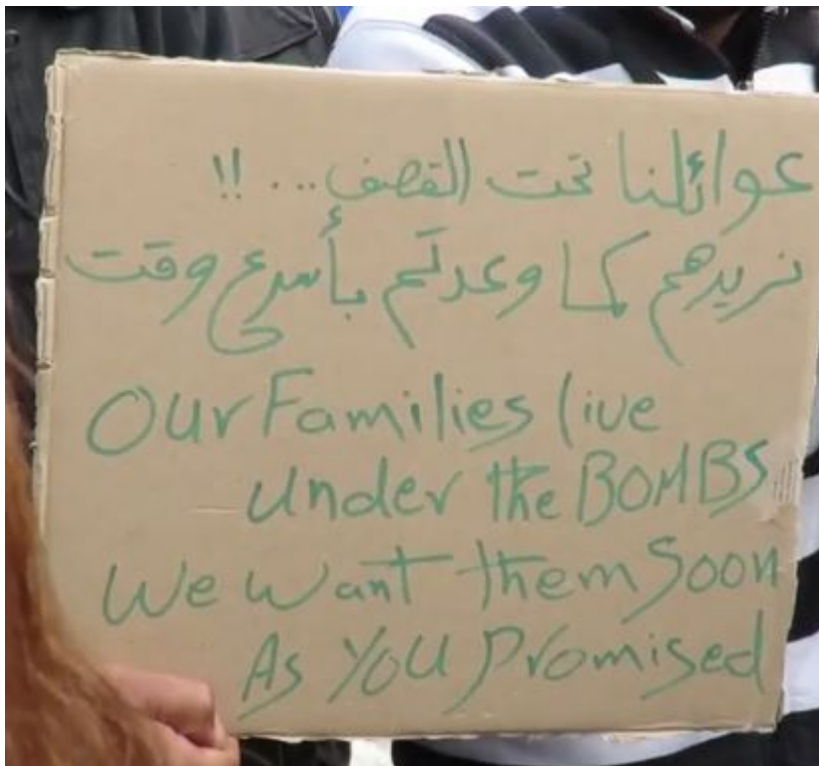 عوائلنا تحت القصف... !!
نريدهم كما وعدتم بأسرع وقت
Our Families live
under the BOMBS
We want them Soon
As You Promised